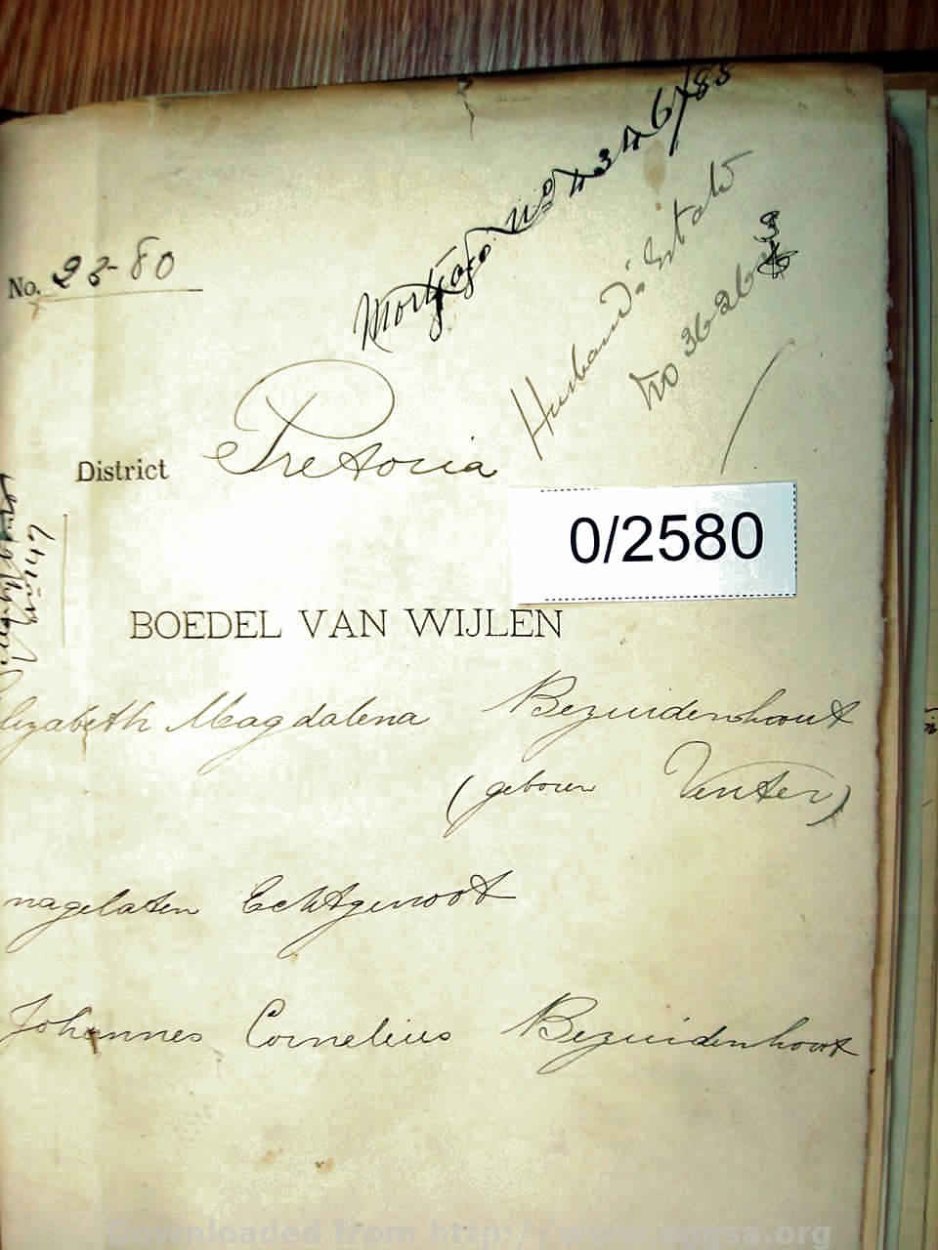 Mortgage No 4346/88
Husband's Estate
No 36263
No. 2580
District Pretoria
0/2580
BOEDEL VAN WIJLEN
lizabeth Magdalena Bezuidenhout
(geboren Venter)
nagelaten Echtgenoot
Johannes Cornelius Bezuidenhout
Downloaded from http://www
.org